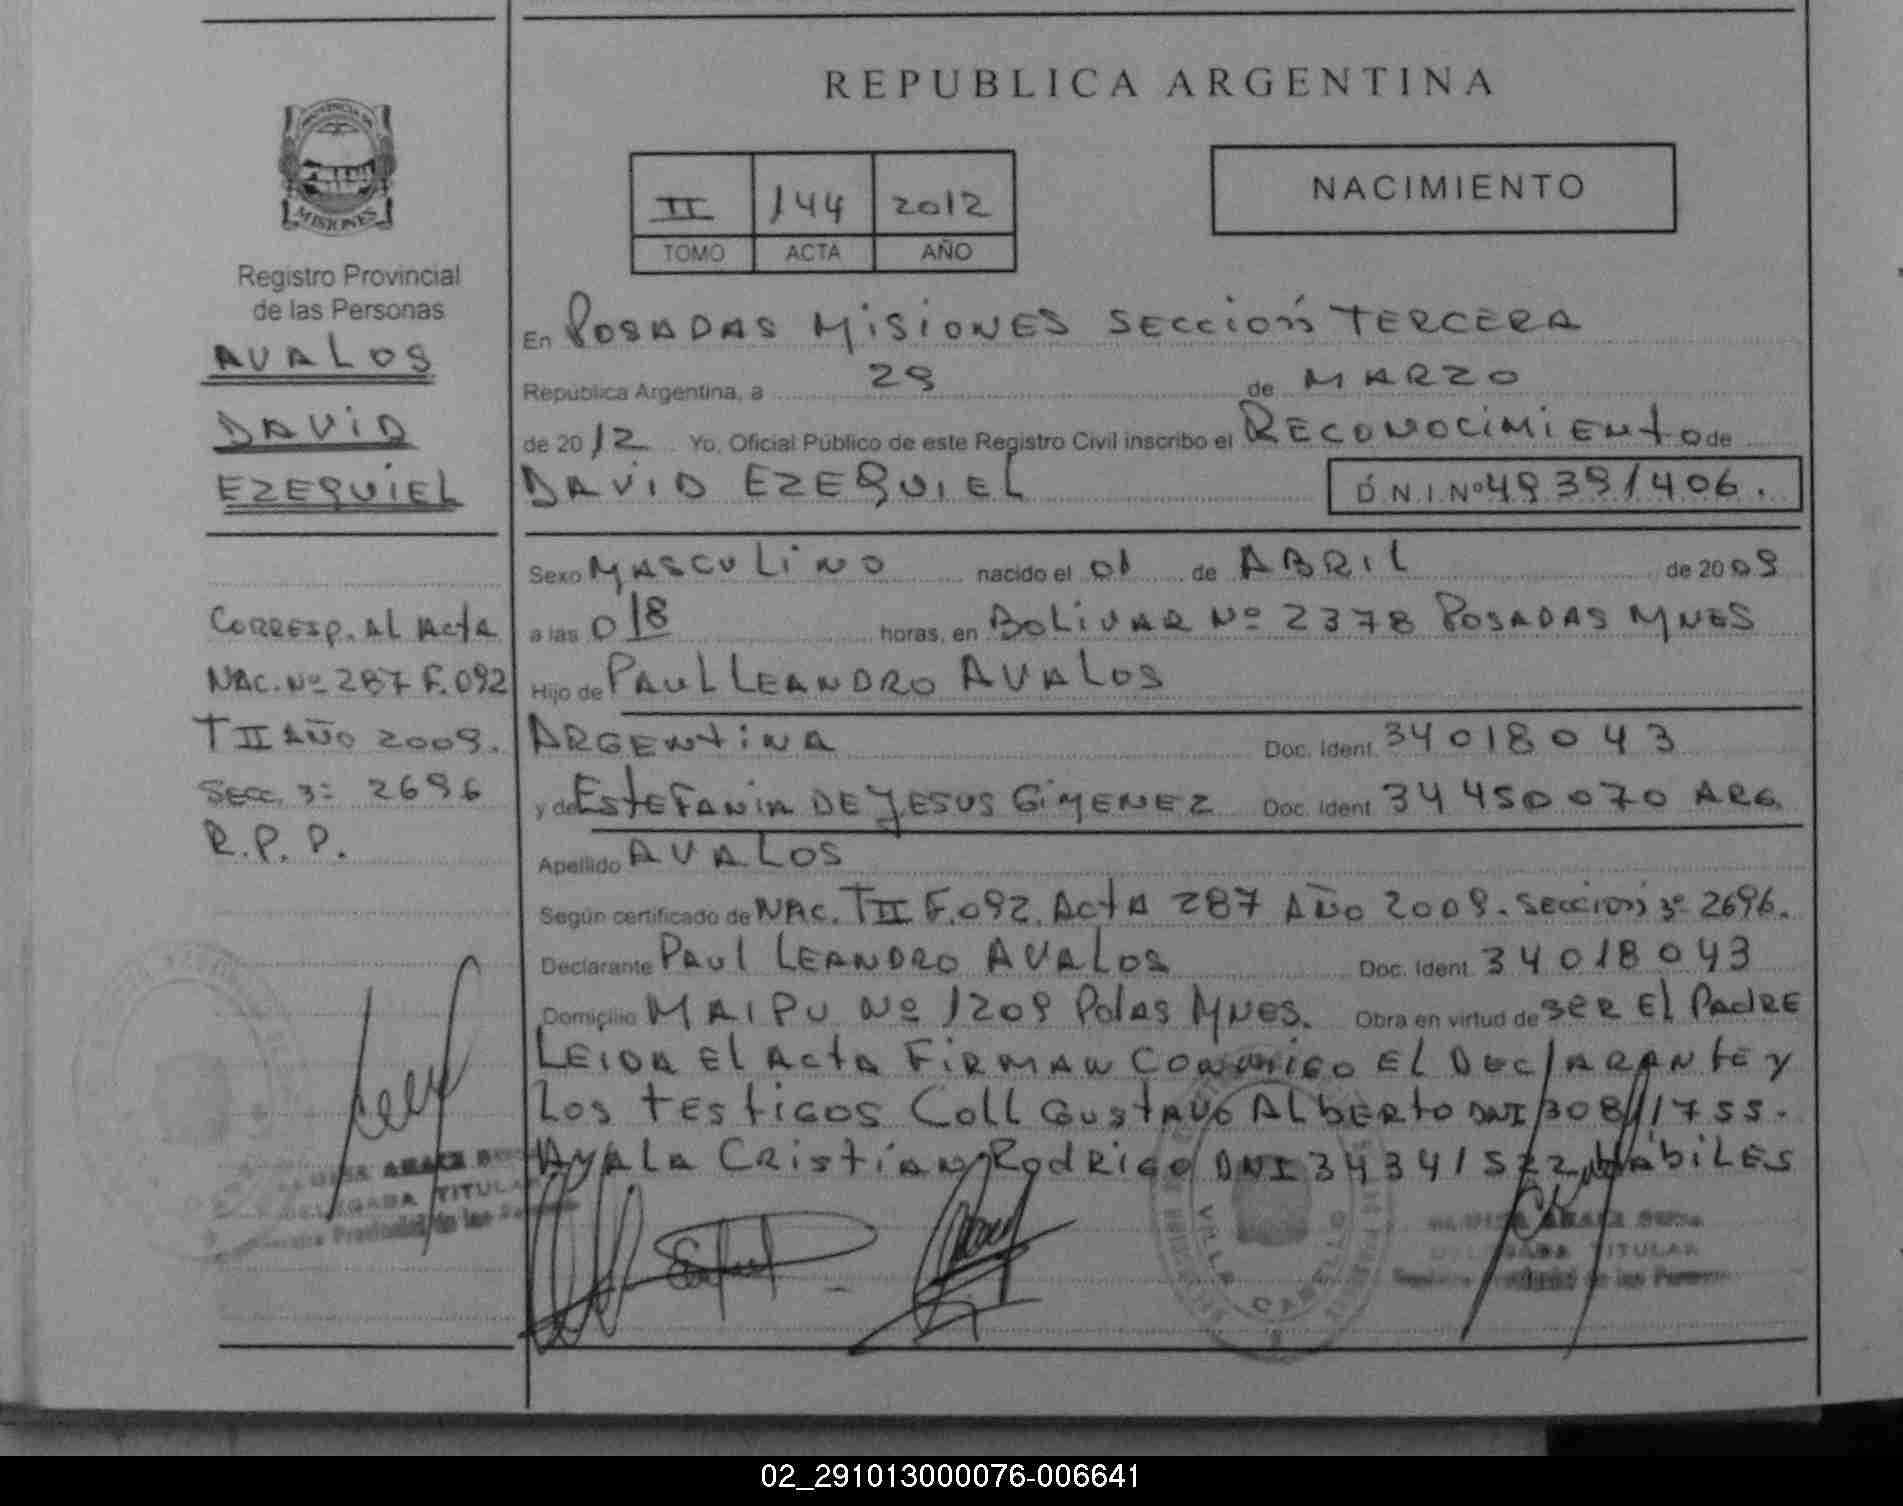 REPUBLICA ARGENTINA
PROVINCIA DE
MISIONES
II 144 2012
TOMO ACTA AÑO
NACIMIENTO
Registro Provincial
de las Personas
AVALOS
DAVID
EZEQUIEL
CORRESP. AL ACTA
NAC. Nº 287 F. 092
T II AÑO 2009.
SECC. 3º 2696
R.P.P.
En POSADAS MISIONES SECCION TERCERA
República Argentina, a 29 de MARZO
de 2012 Yo, Oficial Público de este Registro Civil inscribo el RECONOCIMIENTO de
DAVID EZEQUIEL D N I Nº 49391406.
Sexo MASCULINO nacido el 01 de ABRIL de 2009
a las 018 horas, en BOLIVAR Nº 2378 POSADAS MNES
Hijo de PAUL LEANDRO AVALOS
ARGENTINA Doc. Ident. 34018043
y de ESTEFANIA DE JESUS GIMENEZ Doc. Ident. 34450070 ARG.
Apellido AVALOS
Según certificado de NAC. T II F. 092. ACTA 287 AÑO 2009. Sección 3º 2696.
Declarante PAUL LEANDRO AVALOS Doc. Ident. 34018043
Domicilio MAIPU Nº 1209 Pdas MNES. Obra en virtud de SER El PADRE
LEIDA El ACTA FIRMAN CONMIGO El DEClARANTE y
Los TESTIGOS Coll GUSTAVO ALBERTO DNI 30811755.
AYALA CRISTIAN RODRIGO DNI 34341522 HábiLES
DELEGADA TITULAR
Provincial de las Personas
VILLA CABELLO
DELEGADA TITULAR
Provincial de las Personas
02_291013000076-006641